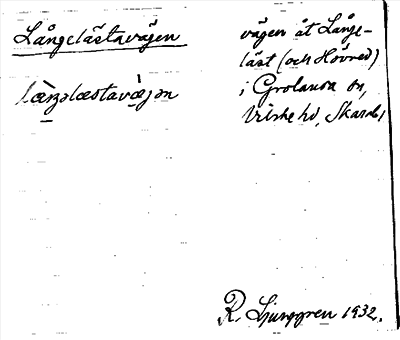 Långelästavägen
vägen åt Långe-
läst (och Hövred)
i Grolanda sn,
Vilske hd, Skarab.
R. Ljunggren 1932.